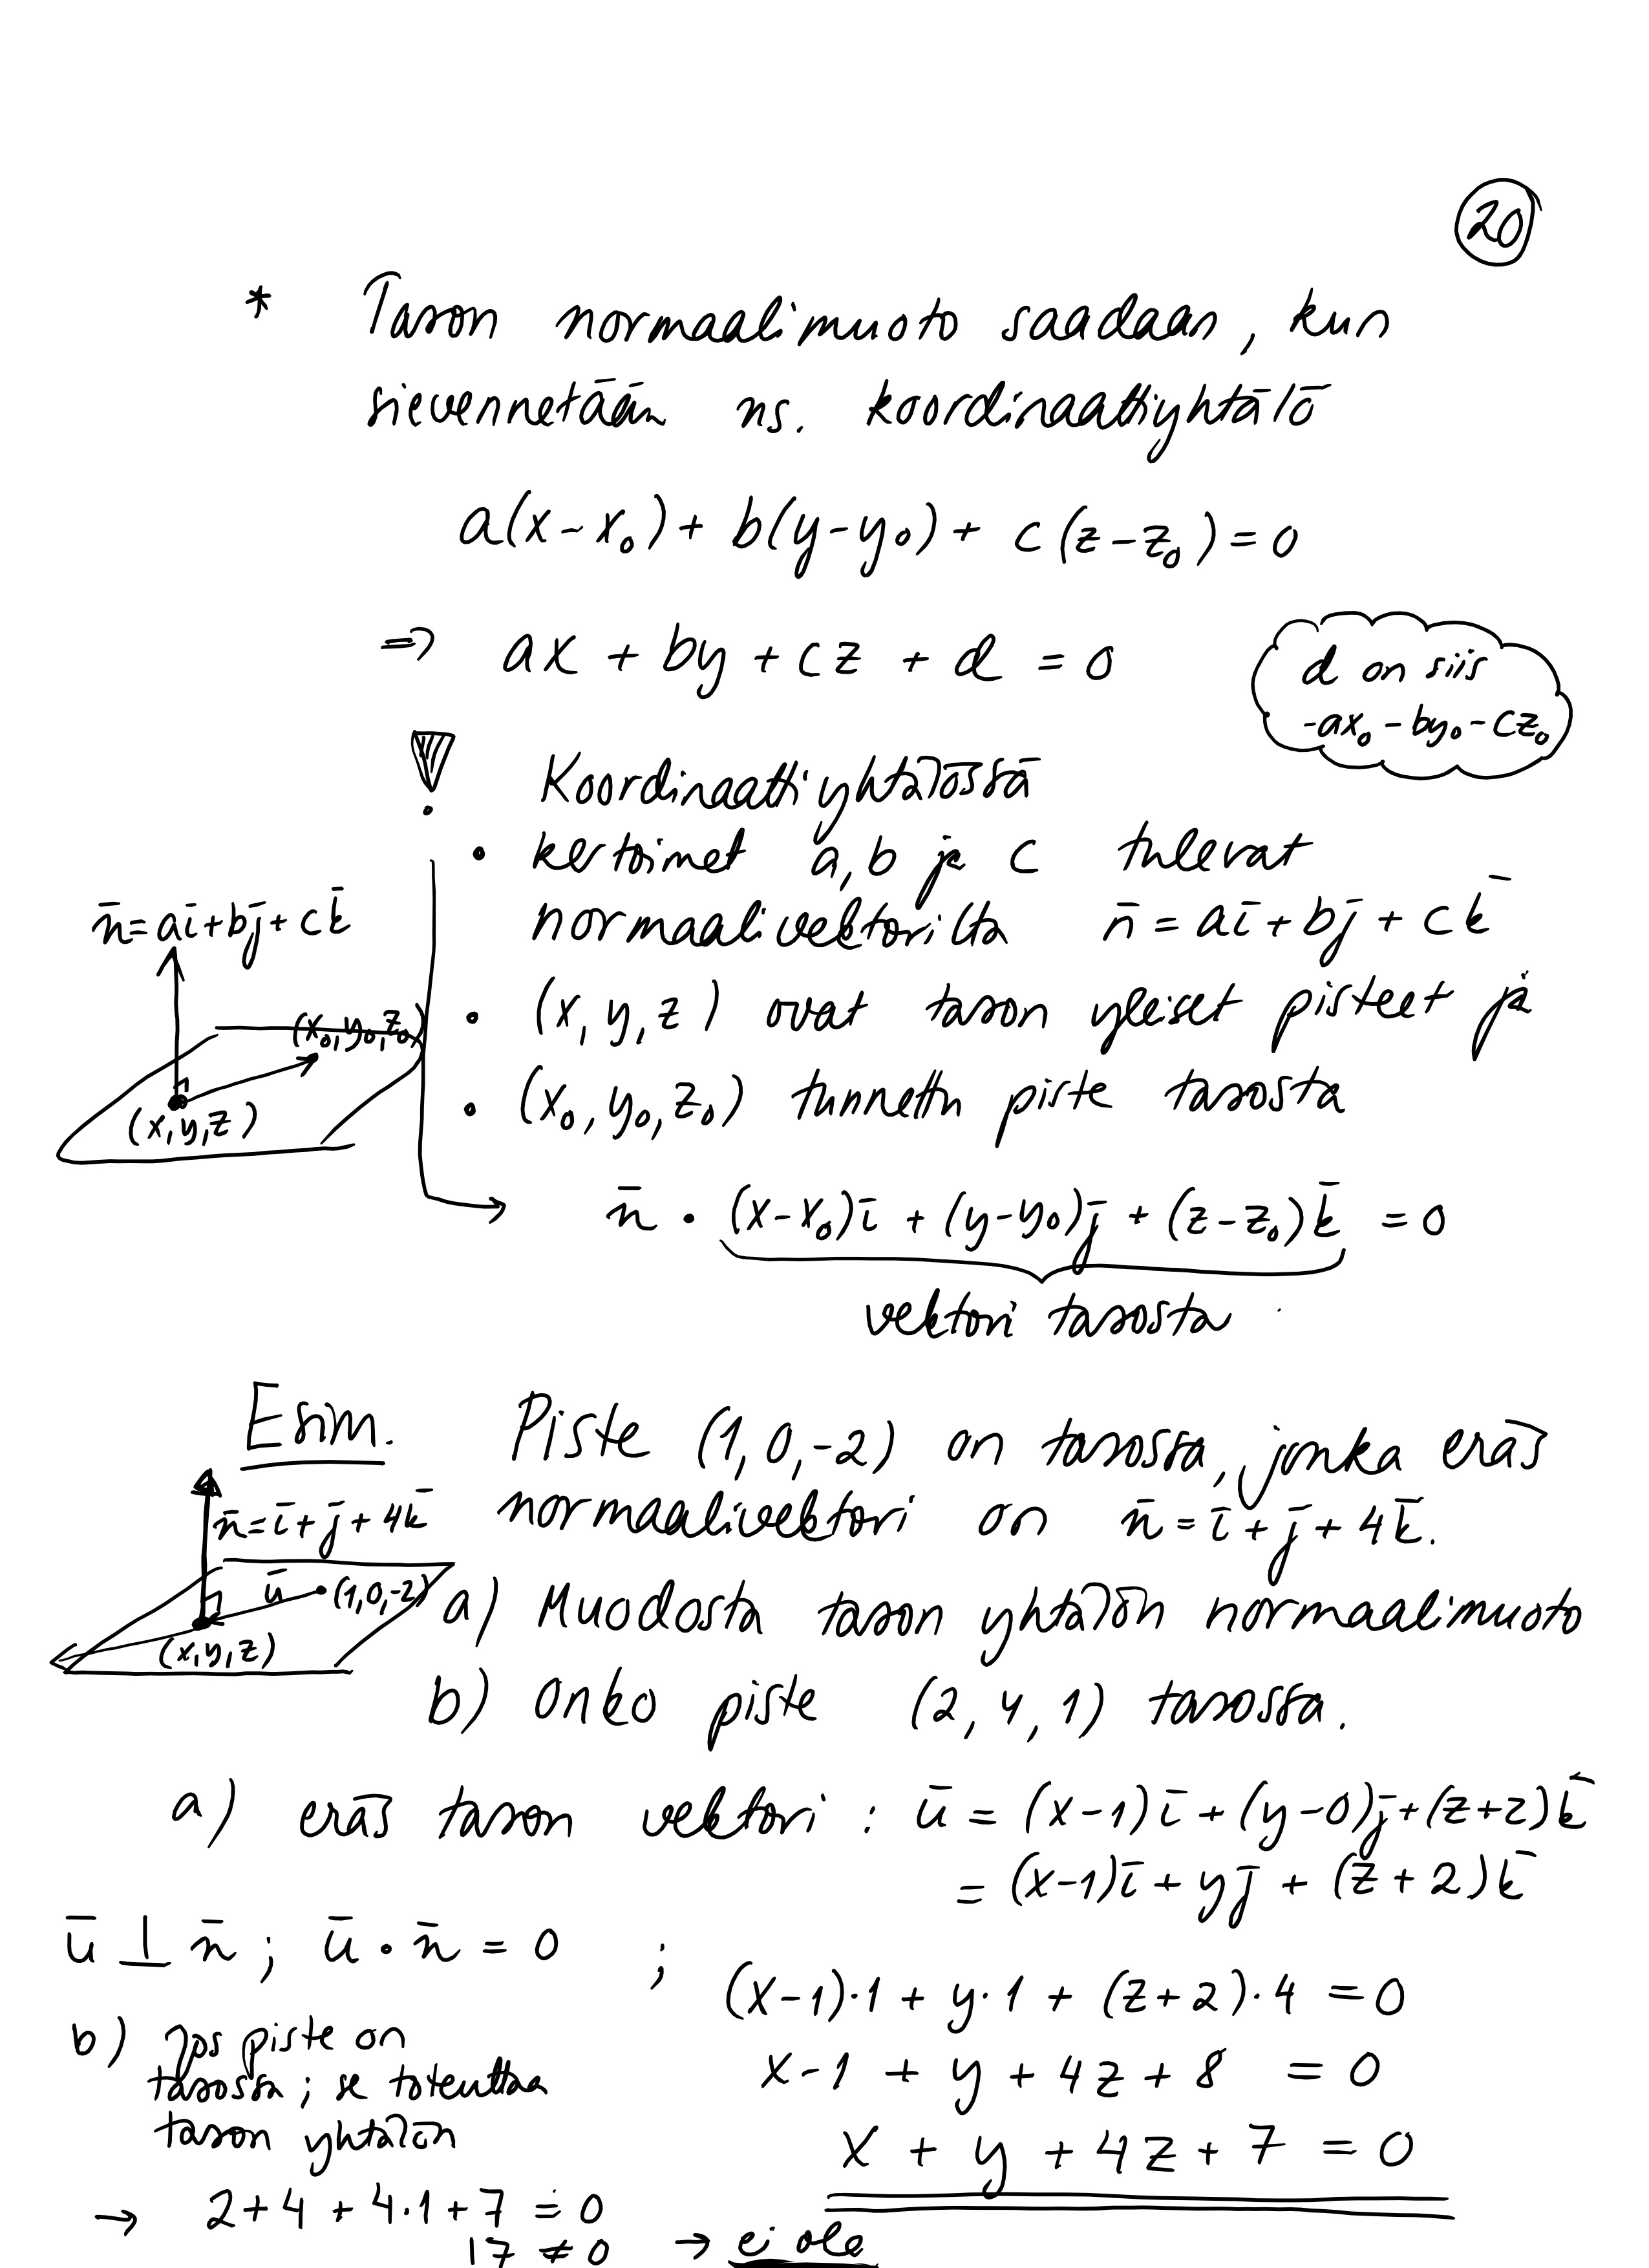 20
* Tason normaalimuoto saadaan, kun
sievennetään ns. koordinaattiyhtälö
a(x-x₀) + b(y-y₀) + c(z-z₀) = 0
⇒ ax + by + cz + d = 0
d on siis
-ax₀ - by₀ - cz₀
! Koordinaattiyhtälössä
• kertoimet a, b ja c tulevat
normaalivektorilta n̄ = aī + bj̄ + ck̄
n̄ = aī + bj̄ + ck̄
(x₀, y₀, z₀)
(x, y, z)
• (x, y, z) ovat tason yleiset pisteet ja
• (x₀, y₀, z₀) tunnettu piste tasosta
→ n̄ • (x-x₀)ī + (y-y₀)j̄ + (z-z₀)k̄ = 0
vektori tasosta
Esim. Piste (1, 0, -2) on tasossa, jonka eräs
normaalivektori on n̄ = ī + j̄ + 4k̄.
n̄ = ī + j̄ + 4k̄
ū • (1, 0, -2)
(x, y, z)
a) Muodosta tason yhtälön normaalimuoto
b) Onko piste (2, 4, 1) tasossa.
a) eräs tason vektori : ū = (x-1)ī + (y-0)j̄ + (z+2)k̄
= (x-1)ī + yj̄ + (z+2)k̄
ū ⊥ n̄ ; ū • n̄ = 0 ;
(x-1)·1 + y·1 + (z+2)·4 = 0
x-1 + y + 4z + 8 = 0
x + y + 4z + 7 = 0
b) Jos piste on
tasossa ; se toteuttaa
tason yhtälön
→ 2+4 + 4·1 + 7 = 0
17 ≠ 0 → ei ole